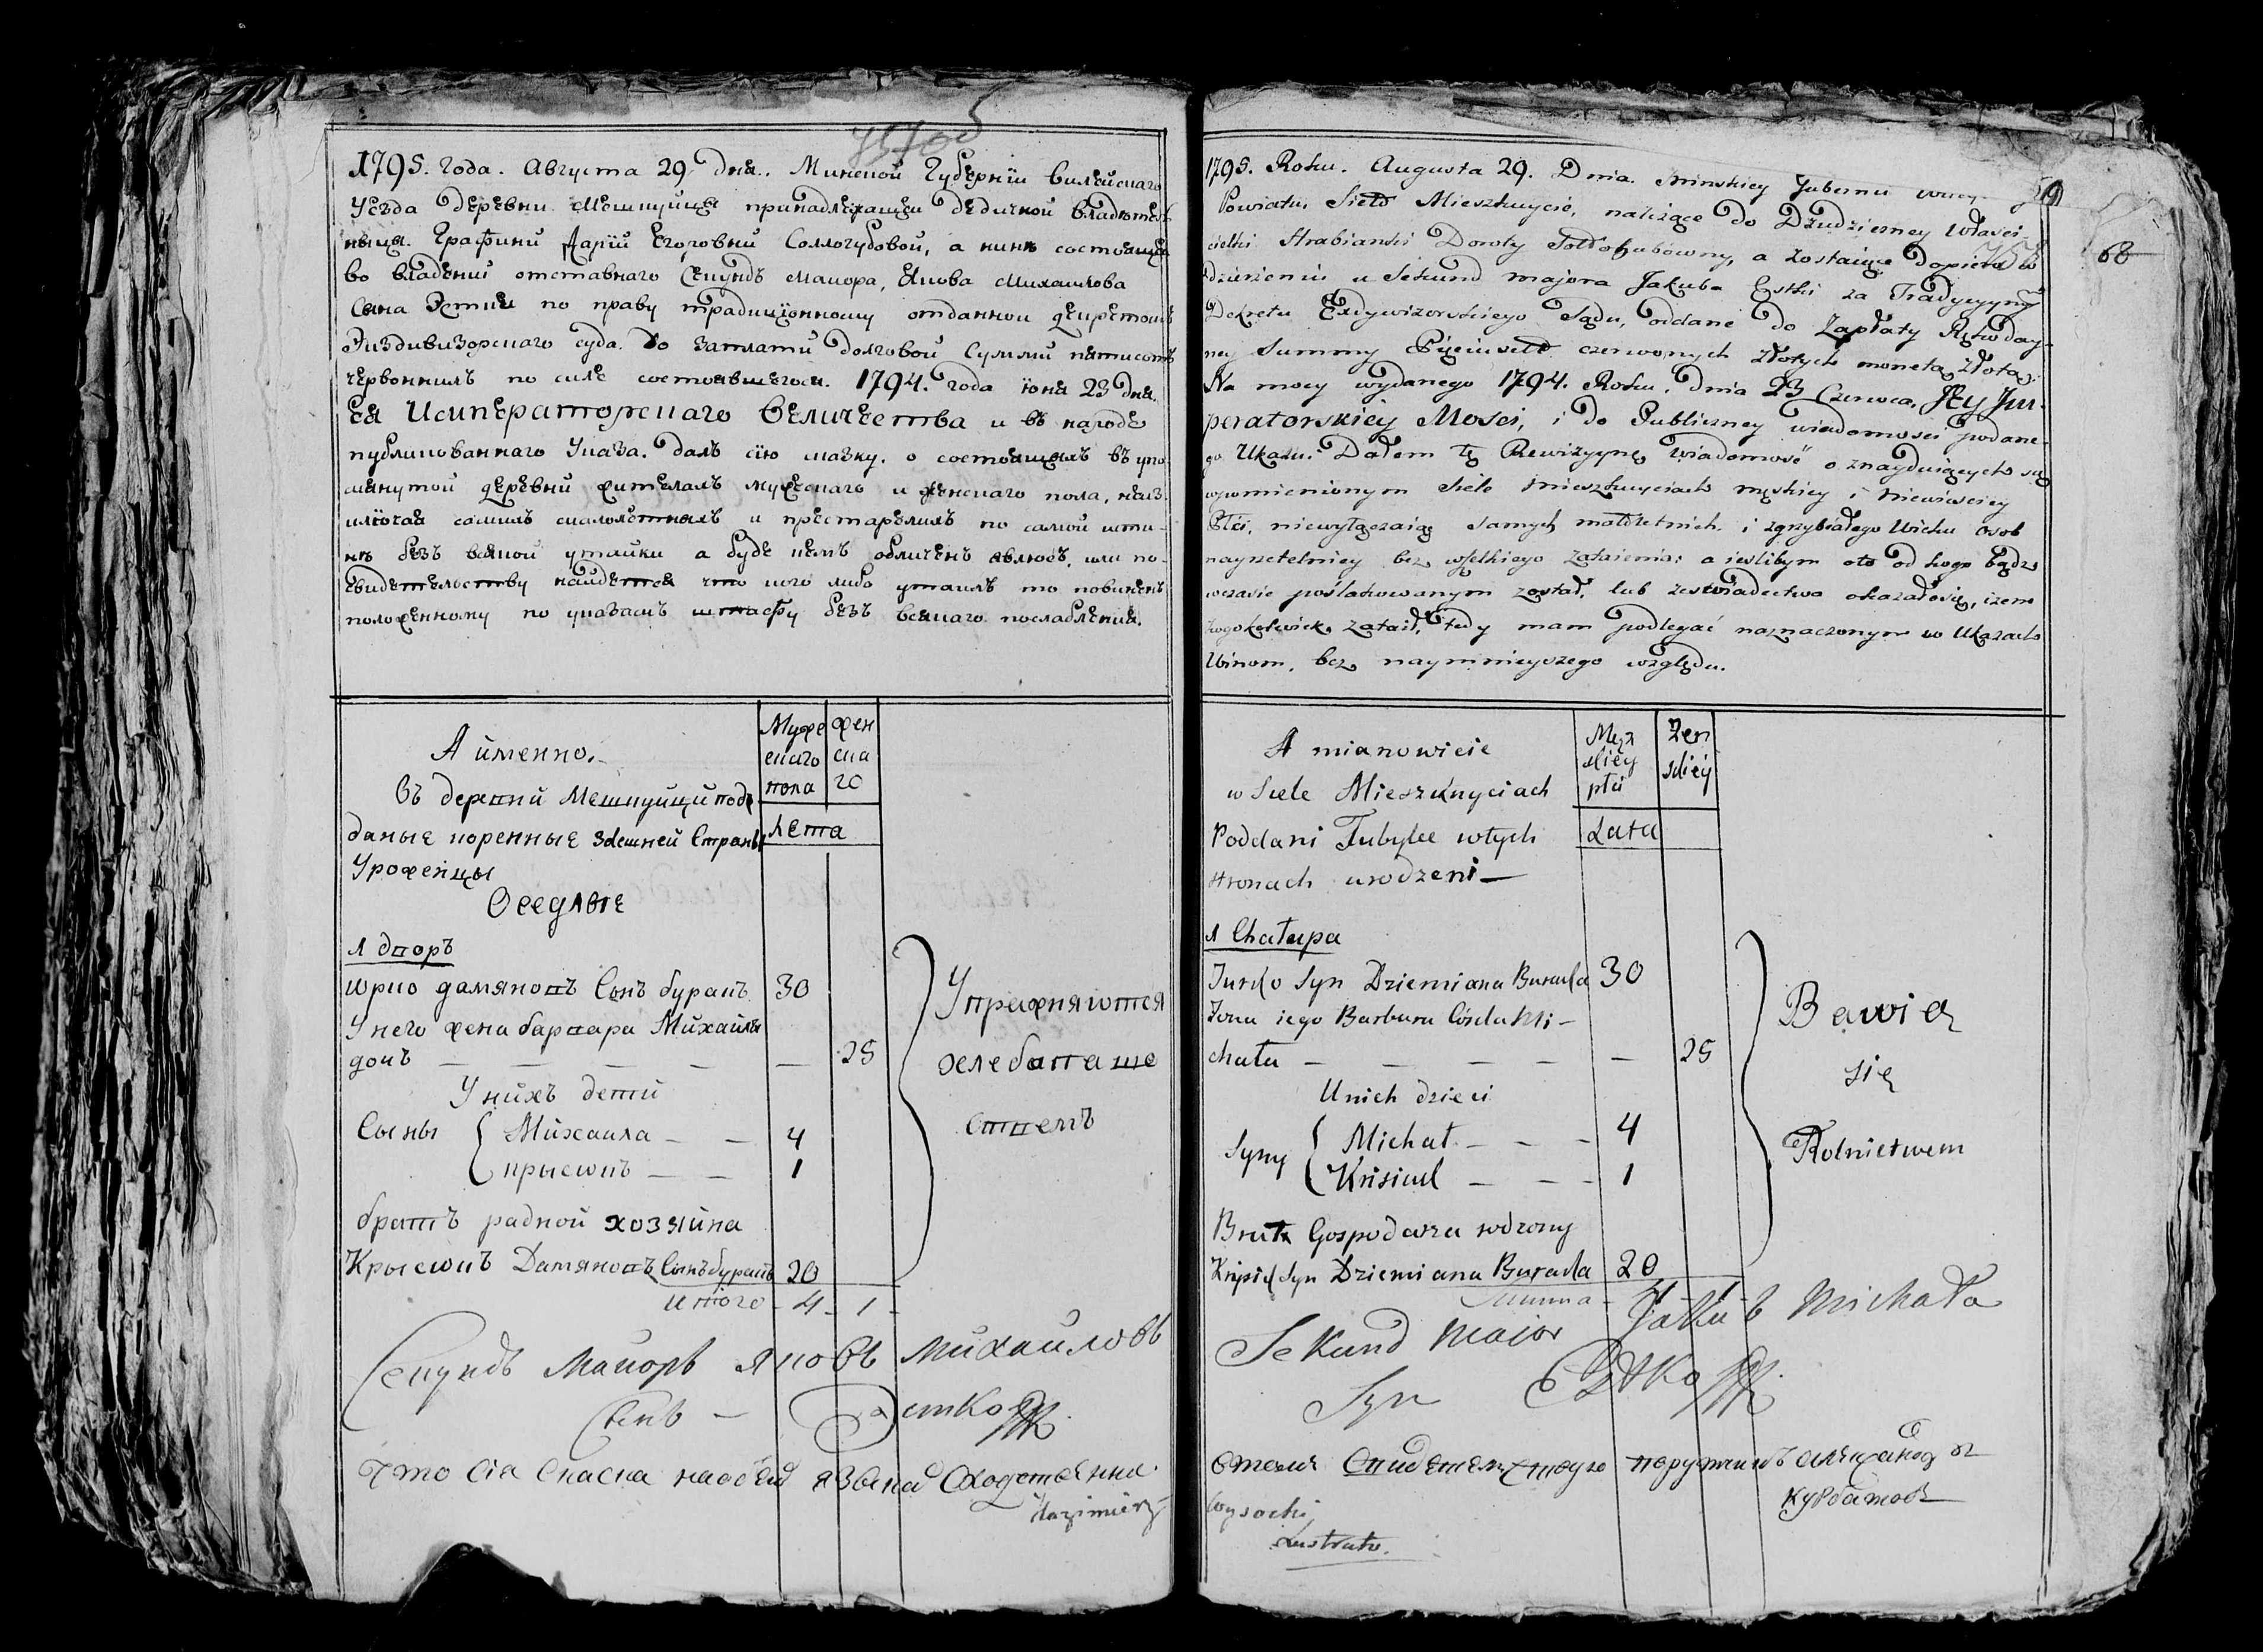 1795. года. Августа 29 Дня. Минской Губерніи Вилейскаго
Уезда Деревни Мешкуйця принадлежащеи Дедичной владетел
ницы. Графини Дарiи Егоровни Соллогубовой, а нинѣ состоящея
во владенiи отставнаго Секундъ маиора, Якова Михаилова
Сына Эстки по праву традиціонному отданнои декретомъ
Экздивизорскаго суда. До заплати долговой Суммы пятисотъ
червоннихъ по силе состоявшегося. 1794. года iюня 23 дня.
Ея Императорскаго Величества и въ народе
публикованнаго Указа. далъ сiю сказку. о состоящихъ въ упо
мянутой деревни жителахъ мужескаго и женскаго пола, неиз
ключая самихъ малолетныхъ и престарелихъ по самой исти-
не безъ всякой утайки а буде кемъ обличенъ явлюсъ, или по-
свидетельству найдется что кого либо утаилъ то повиненъ
положенному по указамъ штрафу безъ всякаго послабления.
А именно.
Муже скаго пола
жен ска го
Лета
Въ деревни Мешкуйци подъ
даные коренные здешней Страны
Уроженцы
Оседлые
1 дворъ
Юрко дамяновъ Сынъ буракъ 30
У него жена барвара Михайла
дочъ — — — — — 25
У нихъ дети
Сыны { Михаила — — 4
крысюкъ — — 1
братъ радной хозяйна
Крысюкъ Дамяновъ Сынъ буракъ 20
Итого - 4 - 1 -
Упражняются
хлебапаше
ствомъ
Секундъ Маиоръ Яковъ Михаиловъ
Сынъ — Эстко
Что Сiя Скаска на обеихъ язокахъ Сходственна
Kazimierz
1795. Roku. Augusta 29. Dnia. Minskiey Gubernii
Powiatu Sieło Mieszkuycie, należące do Dziedziczney Własci
cielki Hrabianki Doroty Sołłohubowny, a zostaiące dopiero w
dzierżeniu u Sekund majora Jakuba Estki za Tradycyyny
Dekretu Exdywizorskiego Sądu, oddane do Zapłaty Rękoday
ney Summy Pięciuset czerwonych złotych monetą złotą.
Na mocy wydanego 1794. Roku. Dnia 23 Czerwca, Jey Jm-
peratorskiey Mości, i do Publiczney wiadomości podane-
go Ukazu. Dałem tę Rewizyyną Wiadomość o znayduiących się
wpomienionym Siele Mieszkuyciach męskiey i niewieściey
Płci, niewyłączaiąc samych małoletnich i zgrzybiałego Wieku osob
nayrzetelniey bez wszelkiego zataienia: a ieslibym oto od kogo bądz
wczasie poślakowanym został, lub zeświadectwa okazałosię, iżem
kogokolwiek zataił, tedy mam podlegać naznaczonym w Ukazach
Winom, bez naymnieyszego względu.
68
A mianowicie
Męz skiey płci
Zen skiey
Lata
w Siele Mieszkuyciach
Poddani Tubylce wtych
stronach urodzeni —
1 Chałupa
Jurko Syn Dziemiana Buraka 30
Zona iego Barbara Córka Mi-
chała — — — — — 25
Unich dzieci
Syny { Michał - - - 4
Krisiuk — - - 1
Brat Gospodarza rodzony
Krysiuk Syn Dziemiana Buraka 20
Summa -
Bawią
się
Rolnictwem
Sekund Maior Jakub Michała
Syn Estko
втомъ Свидетелствую поручикъ александръ
Курбатовъ
Wysocki
Lustrator.